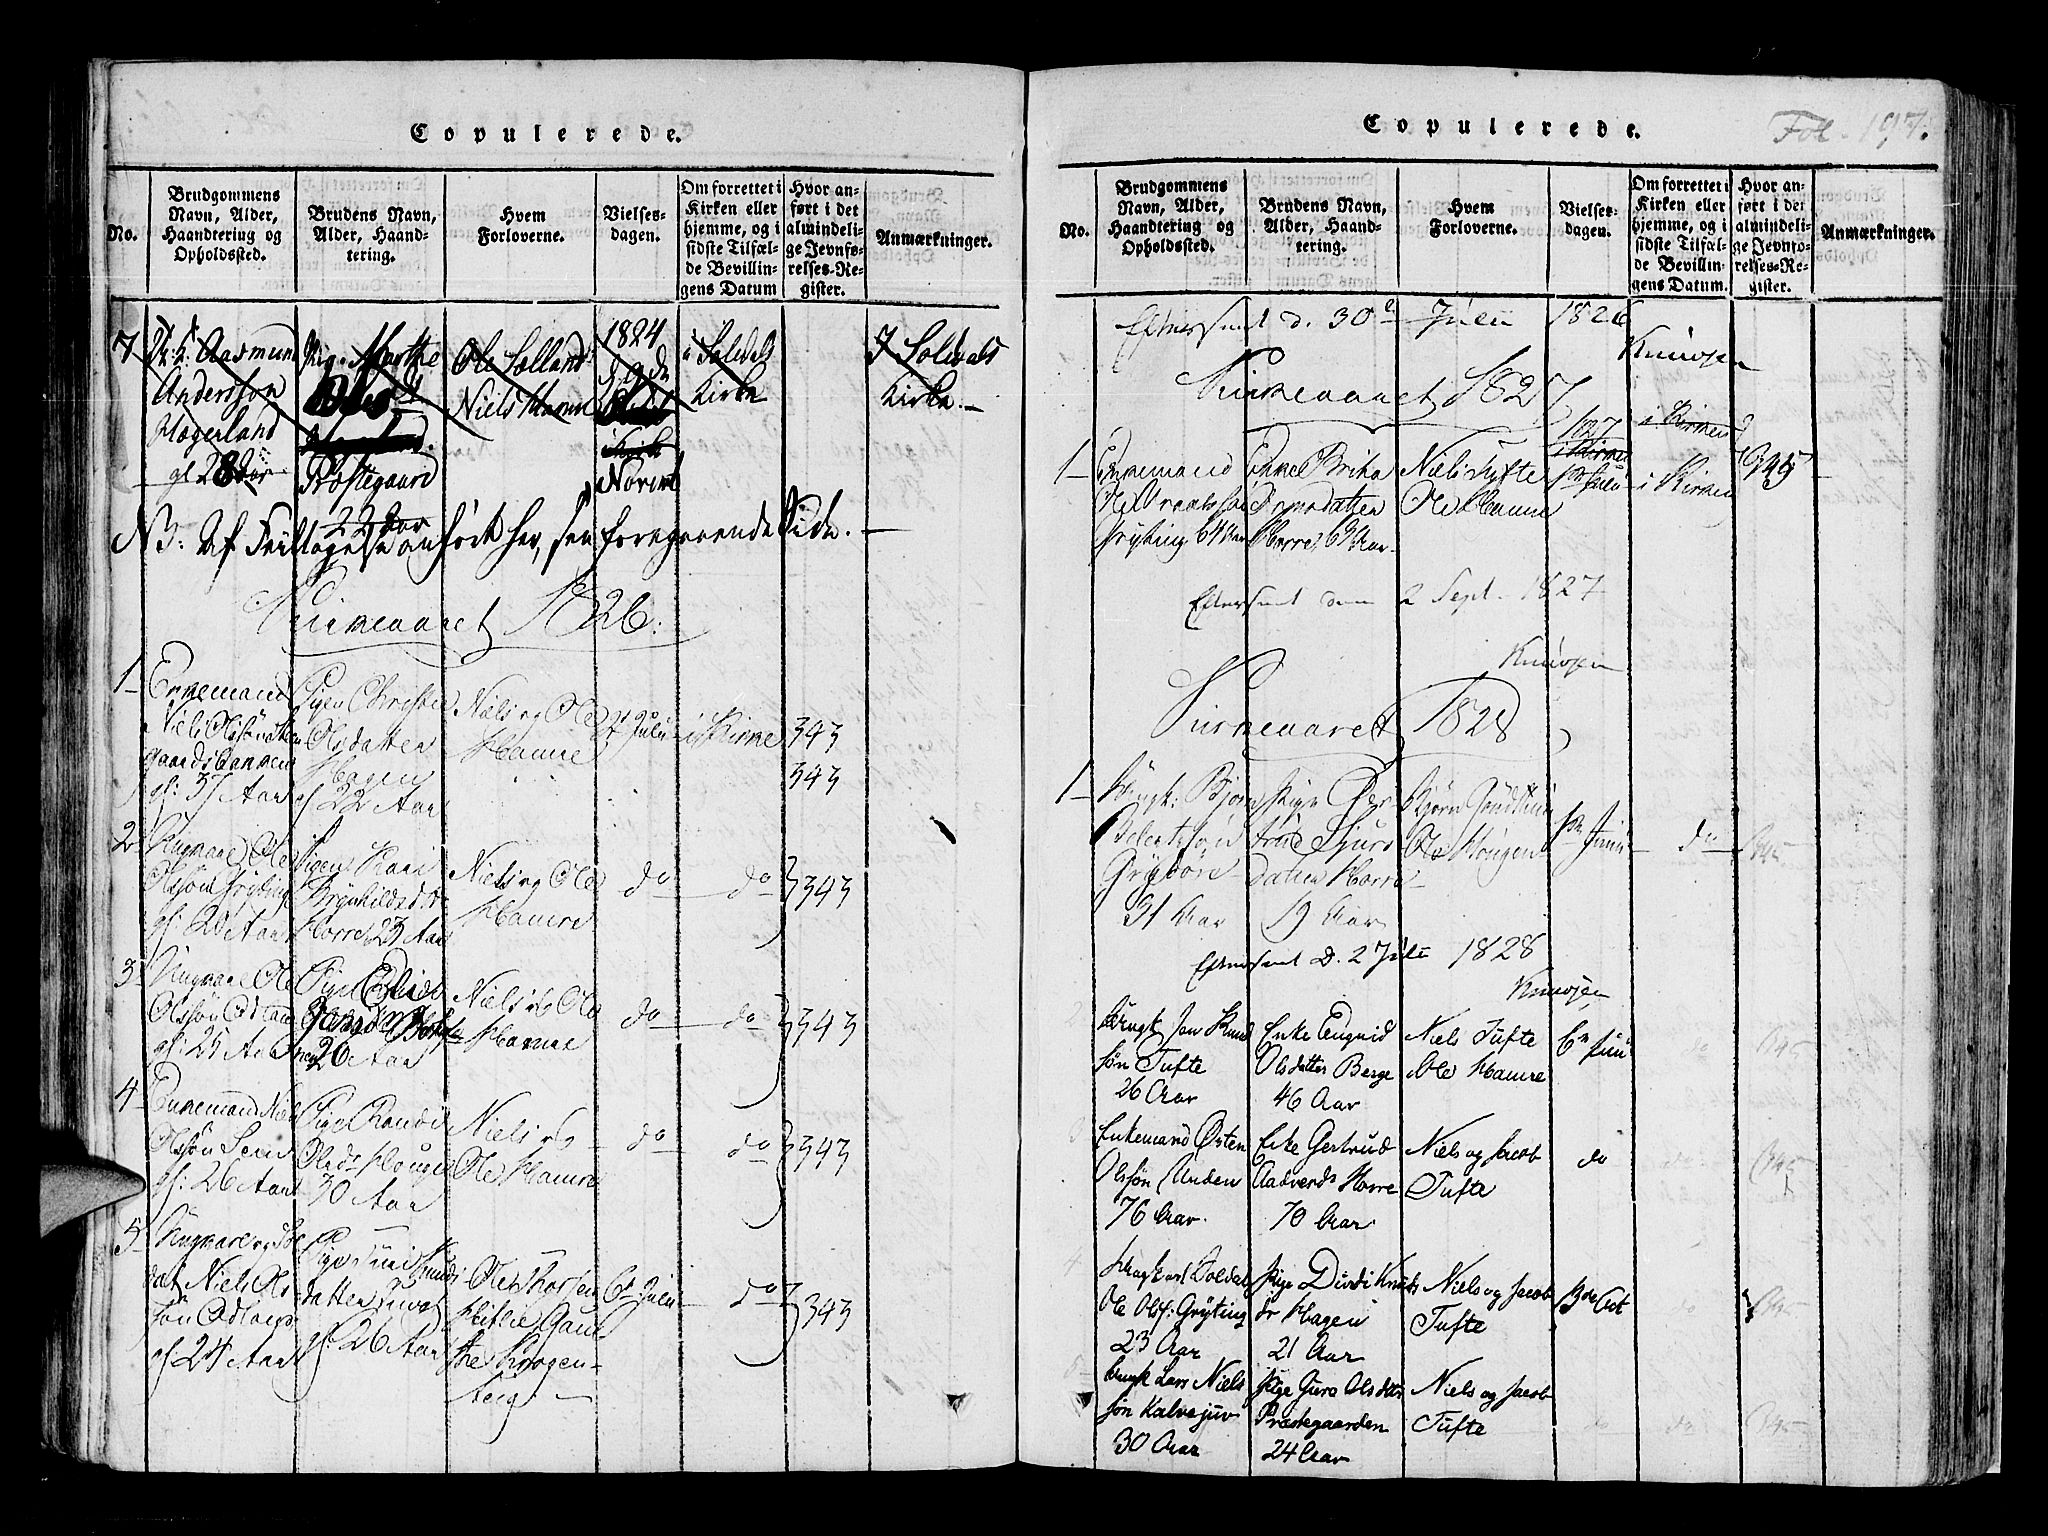 Copulerede.
No.
Brudgommens
Navn, Alder,
Haandtering og
Opholdssted.
Brudens Navn,
Alder, Haand-
tering.
Hvem
Forloverne.
Vielses-
dagen.
Om forrettet i
Kirken eller
hjemme, og i
sidste Tilfæl-
de Bevillin-
gens Datum
Hvor an-
ført i det
almindeli-
ge Jevnfø-
relses-Re-
gister.
Anmærkninger.
7
Aasmund
Anderssøn
Hægerland
gl 28 Aar
Pig. Marthe
Præstegaard
22 Aar
Ole Lolland
Niels Hamre
1824
Novem
i Soldals
Kirke
I Soldals
Kirke.
NB: Af Feiltagelse anført her, see foregaaende Side.
Kirkeaaret 1826.
1
Enkemand
Niels Olssøn
gl: 37 Aar
Pigen Christi
Olsdatter
Hagen
gl 22 Aar
Niels og Ole
Hamre
2 Julii
i Kirke
343
343
2
Ungkarl Ole
Olssøn Gryting
gl: 20 Aar
Pigen Kari
Brynhildsdtr
Horre 23 Aar
Niels og Ole
Hamre
do
do
343
3
Ungkarl Ole
Olssøn Odland
gl: 25 Aar
Pige
26 Aar
Niels og Ole
Hamre
do
do
343
4
Enkemand Niels
Olssøn
gl: 26 Aar
Pige Randi
Olsdr Hougen
30 Aar
Niels og
Ole Hamre
do
do
343
5
Ungkarl og Sol
dat Niels Ols
søn Odland
gl 24 Aar
Pige Guri Knuds
datter
gl: 26 Aar
Ole Thorsen
6 Julii
do
343
Copulerede.
Fol. 197.
No.
Brudgommens
Navn, Alder,
Haandtering og
Opholdssted.
Brudens Navn,
Alder, Haand-
tering.
Hvem
Forloverne.
Vielses-
dagen.
Om forrettet i
Kirken eller
hjemme, og i
sidste Tilfæl-
de Bevillin-
gens Datum.
Hvor an-
ført i det
almindeli-
ge Jevnfø-
relses-Re-
gister.
Anmærkninger.
Efterseet d. 30 Julii 1826
Knudsen
Kirkeaaret 1827
1
Enkemand
Gryting 64 Aar
Enke Brita
Ormsdatter
Horre 63 Aar
Niels Tufte
Ole Hamre
1827
1ste Julii
i Kirken
i Kirken
345
Efterseet den 2 Sept. 1827
Knudsen
Kirkeaaret 1828
1
Ungk: Bjørn
31 Aar
Pige
Sjurs
datter Horre
19 Aar
Bjørn
Ole Hougen
Junii
do
345
Efterseet d. 2 Juli 1828
Knudsen
2
Ungk Jon Knud
søn Tufte
26 Aar
Enke Engerid
Olsdatter Berge
46 Aar
Niels Tufte
Ole Hamre
6te Juli
do
345
3
Enkemand Østen
Olssøn
76 Aar.
Enke Gertrud
Aadverds Horre
70 Aar
Niels og Jacob
Tufte
do
do
345
4
Ungkarl Soldat
Ole Ols: Gryting
23 Aar
Pige Durdi Knuds
dr Hagen
21 Aar
Niels og Jacob
Tufte
3de Oct
do
345
5
Ungk Lars Niels
søn Kalvejuv
30 Aar
Pige Guro Olsdtter
Præstegaarden
24 Aar
Niels og Jacob
Tufte
do
do
345